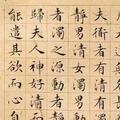 夫道者有清有
靜男清女濁男
者濁之源動者
歸夫人神好清
能遣其欲而心